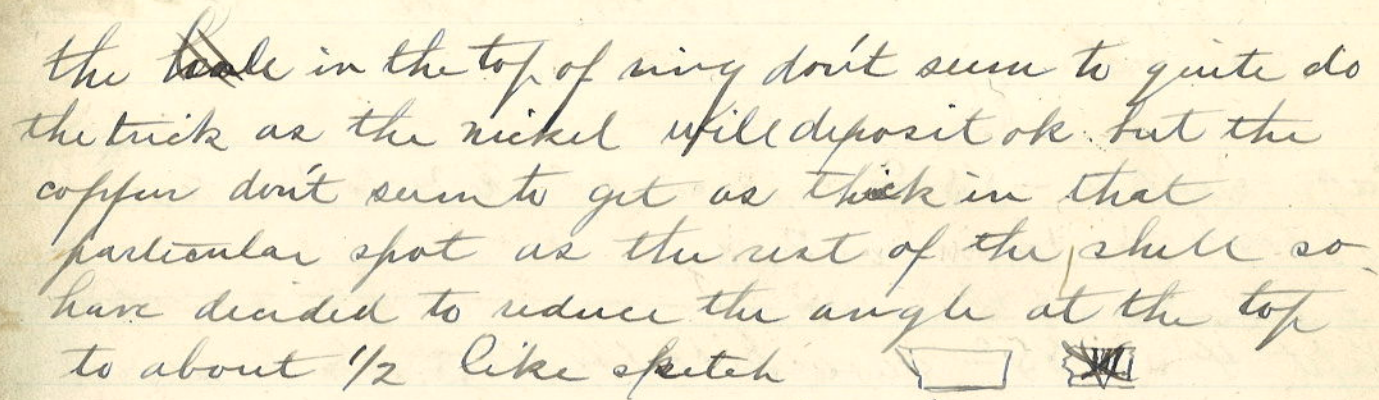 the hole in the top of ring don't seem to quite do
the trick as the nickel will deposit ok but the
copper don't seem to get as thick in that
particular spot as the rest of the shell so
have decided to reduce the angle at the top
to about 1/2 like sketch